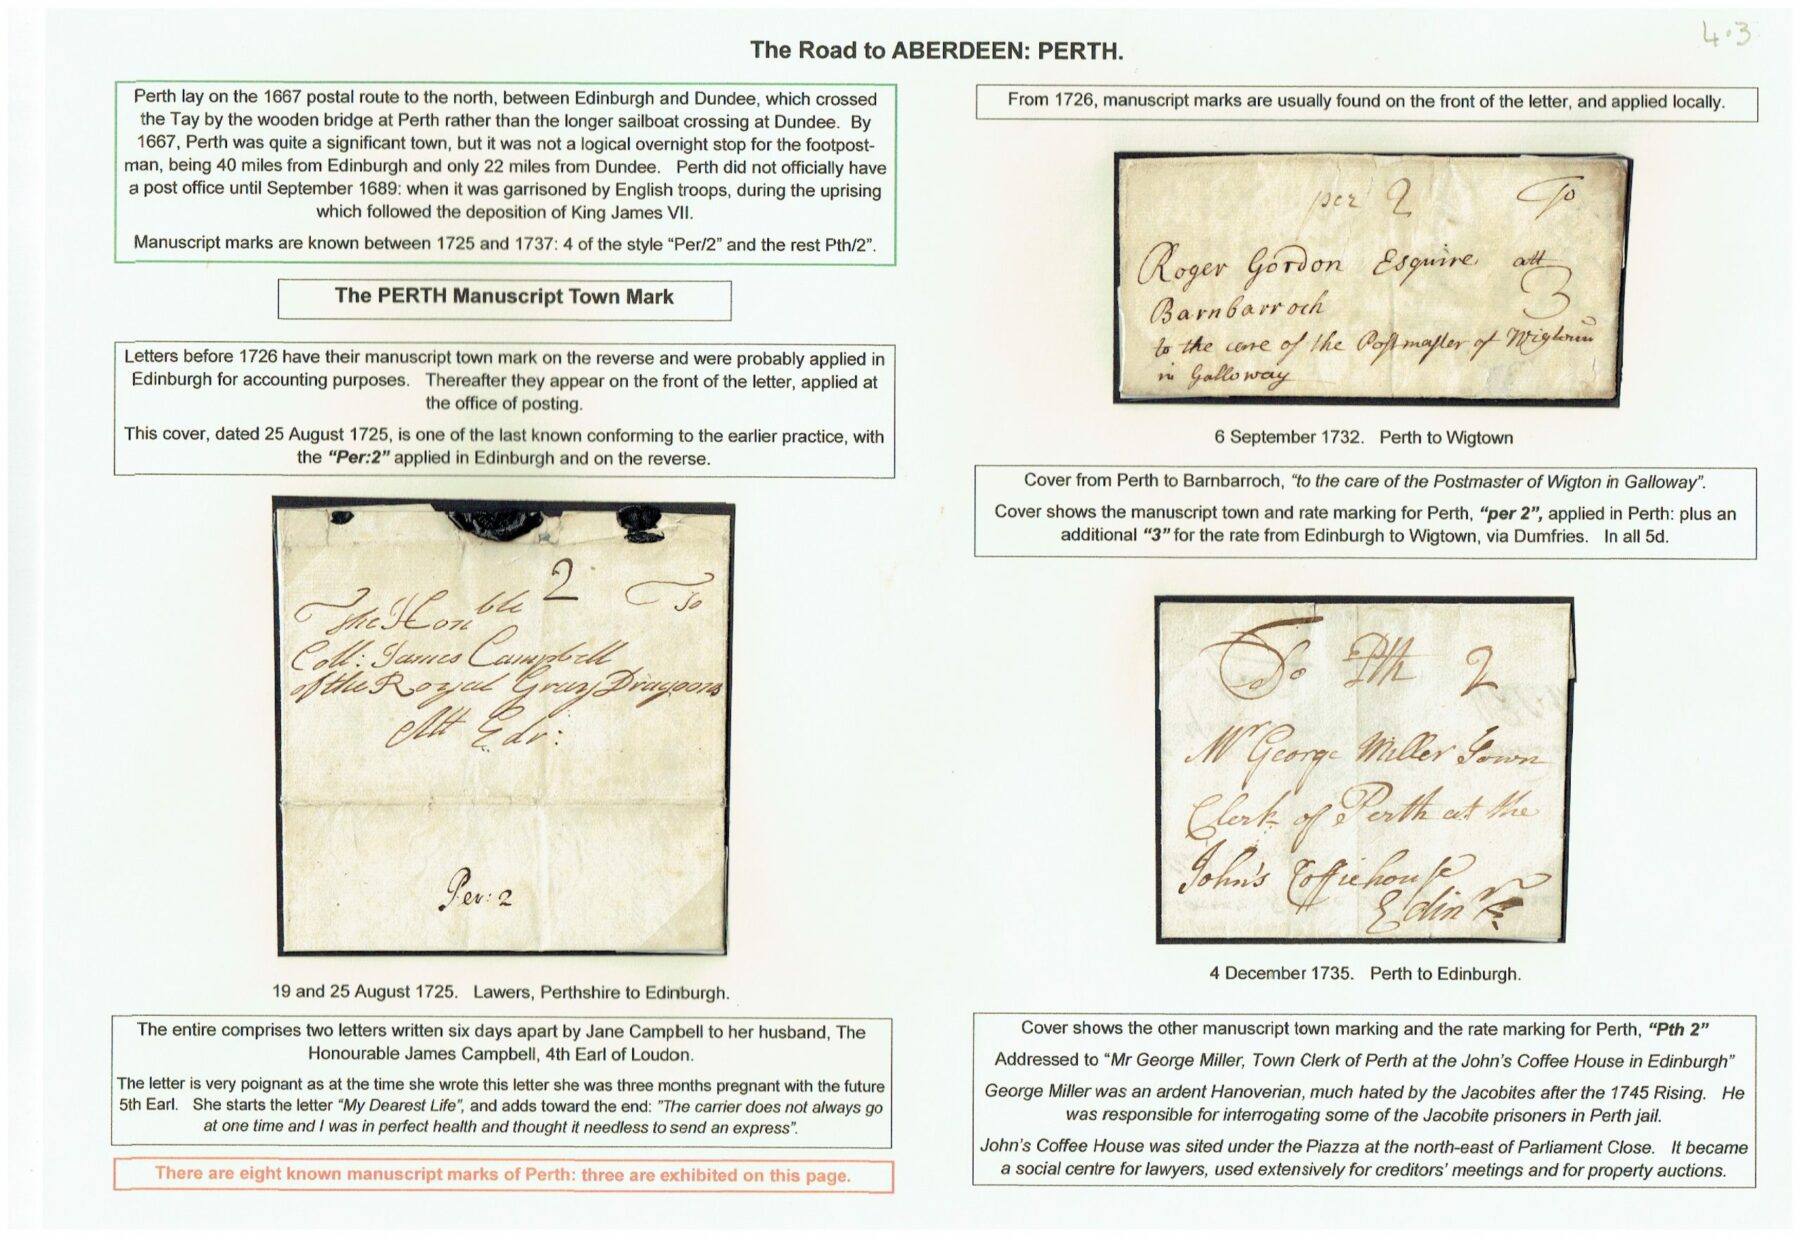 4.3
The Road to ABERDEEN: PERTH.
Perth lay on the 1667 postal route to the north, between Edinburgh and Dundee, which crossed
the Tay by the wooden bridge at Perth rather than the longer sailboat crossing at Dundee. By
1667, Perth was quite a significant town, but it was not a logical overnight stop for the footpost-
man, being 40 miles from Edinburgh and only 22 miles from Dundee. Perth did not officially have
a post office until September 1689: when it was garrisoned by English troops, during the uprising
which followed the deposition of King James VII.
Manuscript marks are known between 1725 and 1737: 4 of the style “Per/2” and the rest Pth/2”.
The PERTH Manuscript Town Mark
Letters before 1726 have their manuscript town mark on the reverse and were probably applied in
Edinburgh for accounting purposes. Thereafter they appear on the front of the letter, applied at
the office of posting.
This cover, dated 25 August 1725, is one of the last known conforming to the earlier practice, with
the “Per:2” applied in Edinburgh and on the reverse.
2 To
The Honble
Coll: James Campbell
of the Royal Gray Dragoons
Att Edr:
Per: 2
19 and 25 August 1725. Lawers, Perthshire to Edinburgh.
The entire comprises two letters written six days apart by Jane Campbell to her husband, The
Honourable James Campbell, 4th Earl of Loudon.
The letter is very poignant as at the time she wrote this letter she was three months pregnant with the future
5th Earl. She starts the letter “My Dearest Life”, and adds toward the end: ”The carrier does not always go
at one time and I was in perfect health and thought it needless to send an express”.
There are eight known manuscript marks of Perth: three are exhibited on this page.
From 1726, manuscript marks are usually found on the front of the letter, and applied locally.
per 2 To
Roger Gordon Esquire att
Barnbarroch 3
to the care of the Postmaster of Wigtoun
in Galloway
6 September 1732. Perth to Wigtown
Cover from Perth to Barnbarroch, “to the care of the Postmaster of Wigton in Galloway”.
Cover shows the manuscript town and rate marking for Perth, “per 2”, applied in Perth: plus an
additional “3” for the rate from Edinburgh to Wigtown, via Dumfries. In all 5d.
To Pth 2
Mr George Miller Town
Clerk of Perth at the
John's Coffiehouse
Edinr
4 December 1735. Perth to Edinburgh.
Cover shows the other manuscript town marking and the rate marking for Perth, “Pth 2”
Addressed to “Mr George Miller, Town Clerk of Perth at the John’s Coffee House in Edinburgh”
George Miller was an ardent Hanoverian, much hated by the Jacobites after the 1745 Rising. He
was responsible for interrogating some of the Jacobite prisoners in Perth jail.
John’s Coffee House was sited under the Piazza at the north-east of Parliament Close. It became
a social centre for lawyers, used extensively for creditors’ meetings and for property auctions.